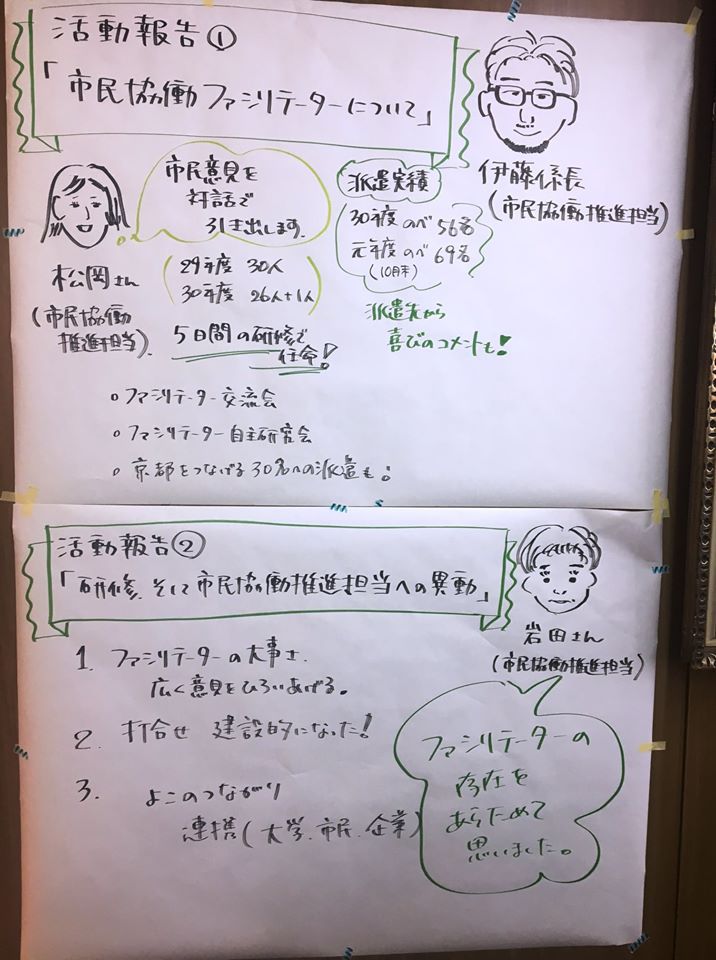 活動報告①
「市民協働ファシリテーターについて」
伊藤係長
(市民協働推進担当)
松岡さん
(市民協働
推進担当)
市民意見を
対話で
引き出します.
(29年度 30人
30年度 26人+1人)
5日間の研修で
任命!
派遣実績
(30年度 のべ 56名
元年度 のべ 69名
(10月末)
派遣先から
喜びのコメントも!
○ファシリテーター交流会
○ファシリテーター自主研究会
○京都をつなげる30名への派遣も!
活動報告②
「研修.そして市民協働推進担当への異動」
岩田さん
(市民協働推進担当)
1. ファシリテーターの大事さ.
広く意見をひろいあげる。
2. 打合せ 建設的になった!
3. よこのつながり
連携(大学.市民.企業)
ファシリテーターの
存在を
あらためて
思いました。